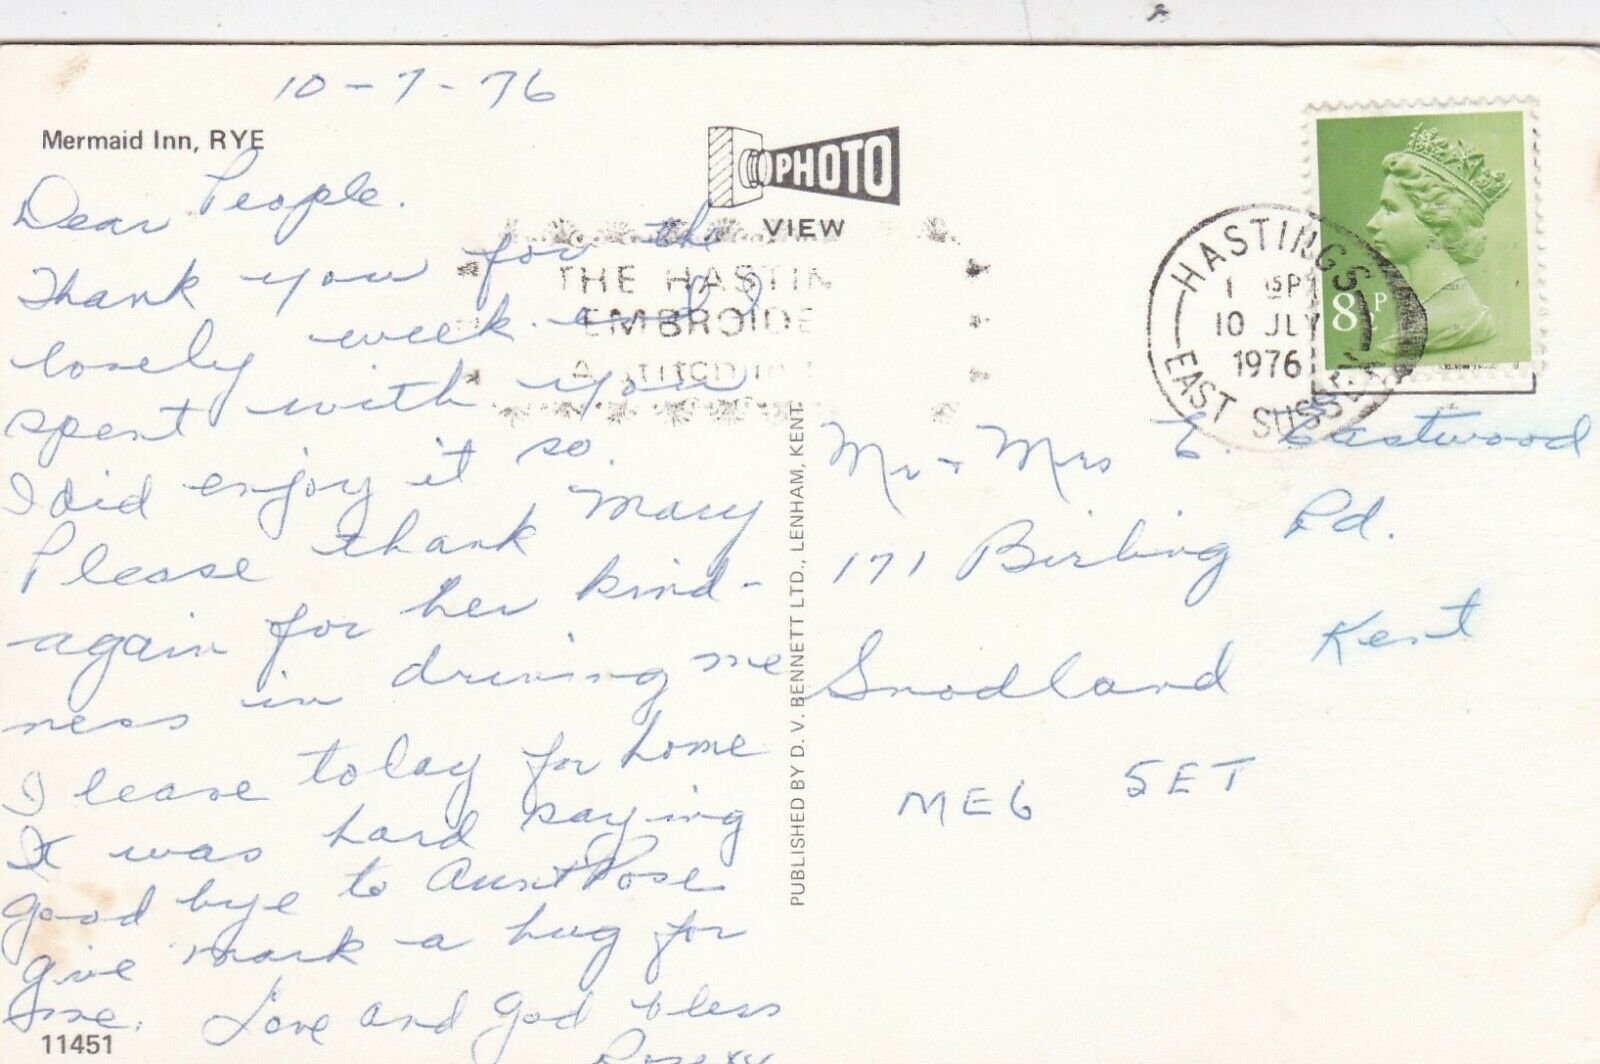 10-7-76
Mermaid Inn, RYE
Dear People.
Thank you for the
lovely week and I
spent with you
I did enjoy it so.
Please thank Mary
again for her kind-
ness in driving me
I leave today for home
It was hard saying
good bye to Aunt Rose
give Mark a hug for
me. Love and God bless
11451
PHOTO
VIEW
THE HASTIN
EMBROIDE
A STITCH IN
PUBLISHED BY D. V. BENNETT LTD., LENHAM, KENT.
HASTINGS
1 15P
10 JLY
1976
EAST SUSSEX
8½P
Mr + Mrs E. Eastwood
171 Birling Rd.
Snodland Kent
ME6 5ET